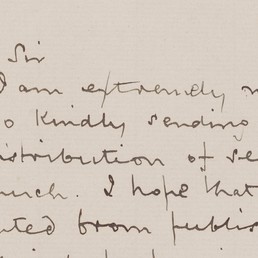 Sir
I am extremely
so kindly sending
distribution of se
urch. I hope that
uted from publis